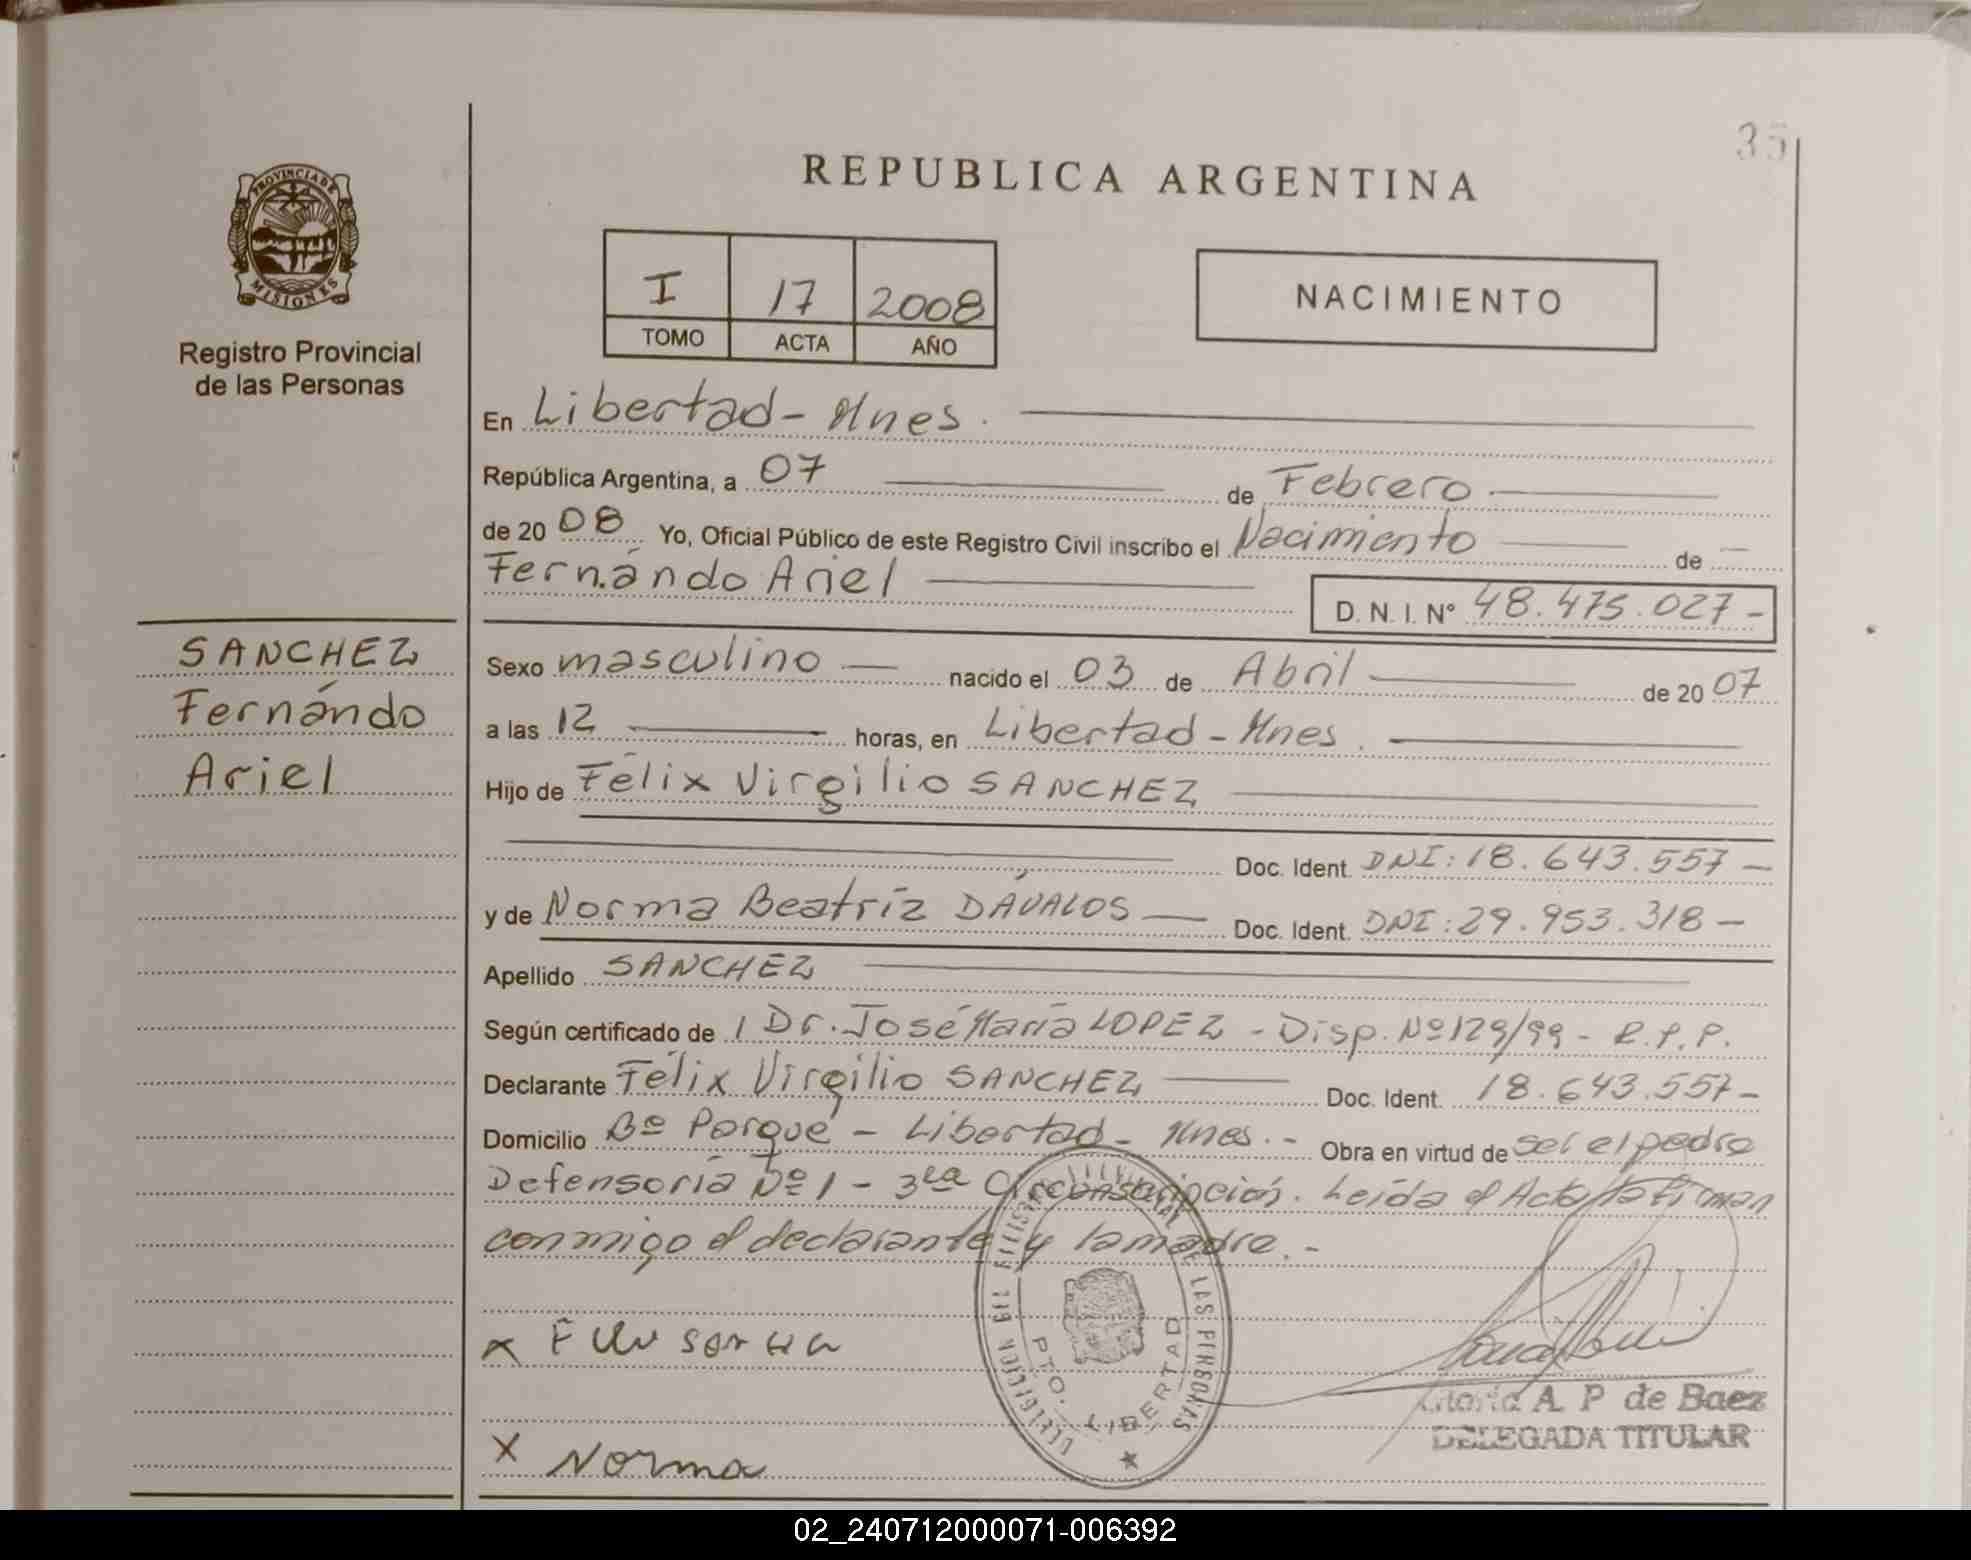 35
REPUBLICA ARGENTINA
PROVINCIA DE
MISIONES
Registro Provincial
de las Personas
I 17 2008
TOMO ACTA AÑO
NACIMIENTO
En Libertad - Mnes.
República Argentina, a 07 de Febrero
de 20 08 Yo, Oficial Público de este Registro Civil inscribo el Nacimiento de
Fernándo Ariel
D. N. I. Nº 48.475.027-
SANCHEZ
Fernándo
Ariel
Sexo masculino nacido el 03 de Abril de 20 07
a las 12 horas, en Libertad - Mnes.
Hijo de Félix Virgilio SANCHEZ
Doc. Ident. DNI: 18.643.557 -
y de Norma Beatríz DÁVALOS Doc. Ident. DNI: 29.953.318 -
Apellido SANCHEZ
Según certificado de / Dr. José María LOPEZ - Disp. Nº 129/99 - R.P.P.
Declarante Félix Virgilio SANCHEZ Doc. Ident. 18.643.557-
Domicilio Bº Parque - Libertad - Mnes. - Obra en virtud de ser el padre
Defensoría Nº 1 - 3ra Circunscripción. Leída el Acta la firman
conmigo el declarante y la madre. -
DE LAS PERSONAS
PTO. LIBERTAD
x
A. P de Baez
DELEGADA TITULAR
x Norma
02_240712000071-006392